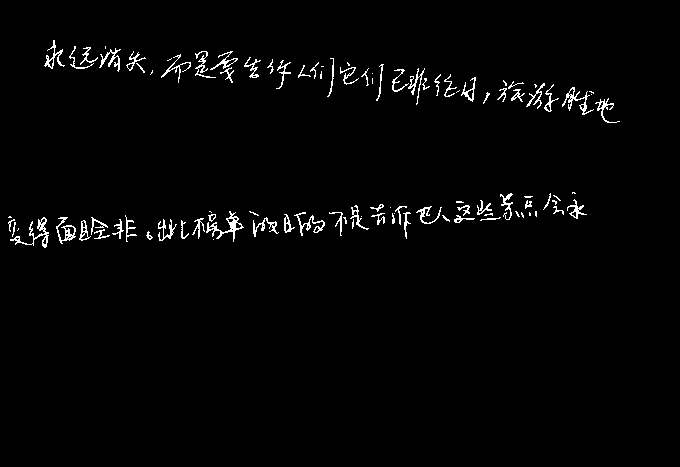 永远消失，而是要告诉人们它们已非往日，旅游胜地
变得面目全非。出此榜单的目的不是告诉世人这些景点会永